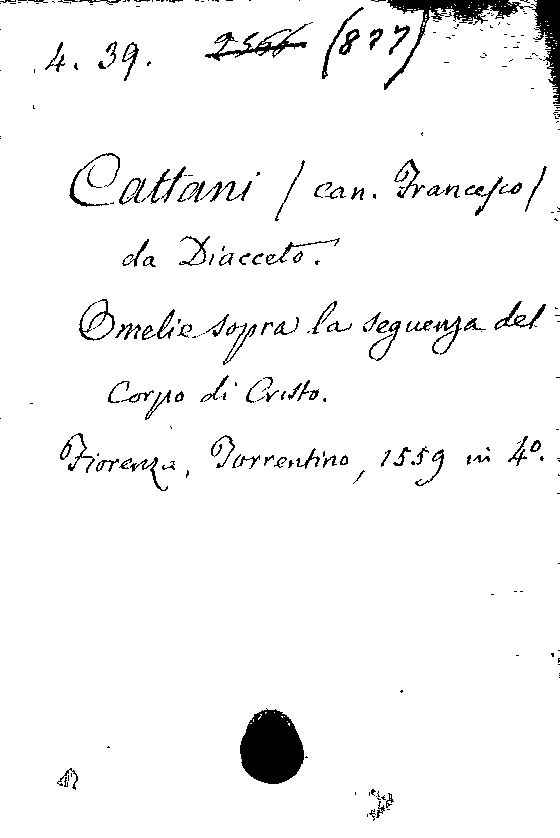 4. 39. (877)
Cattani / can. Francesco /
da Diacceto.
Omelie sopra la seguenza del
Corpo di Cristo.
Fiorenza, Torrentino, 1559 in 4º.